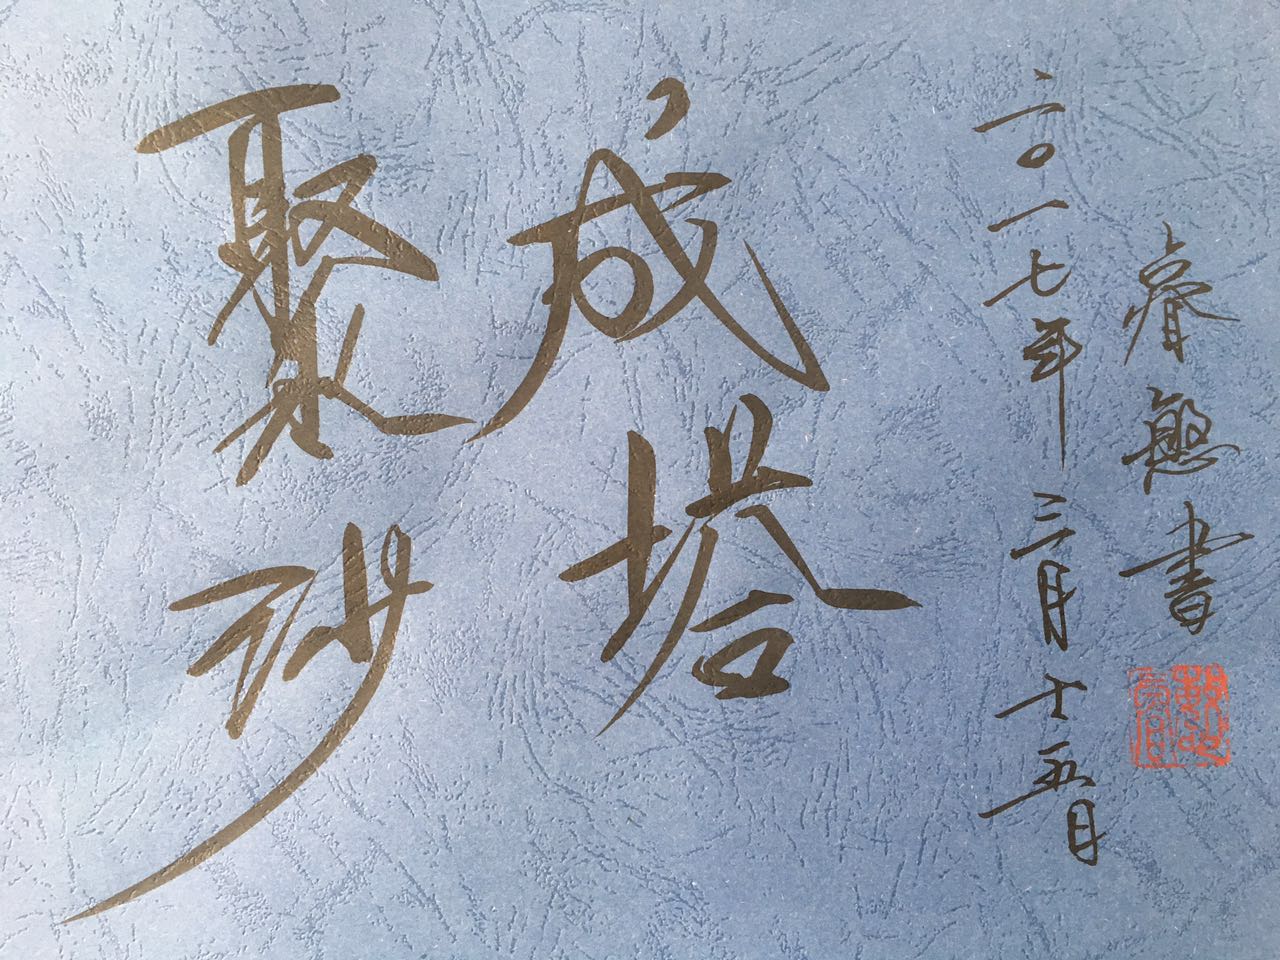 聚沙
成塔
二〇一七年三月十五日
睿懃書